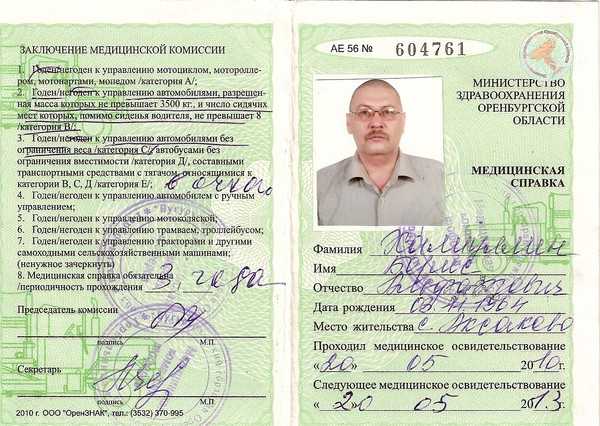 ЗАКЛЮЧЕНИЕ МЕДИЦИНСКОЙ КОМИССИИ
1. Годен/негоден к управлению мотоциклом, мотороллером, мотонартами, мопедом /категория А/;
2. Годен/негоден к управлению автомобилями, разрешенная масса которых не превышает 3500 кг., и число сидячих
мест которых, помимо сиденья водителя, не превышает 8
/категория В/;
3. Годен/негоден к управлению автомобилями без
ограничения веса /категория С/, автобусами без
ограничения вместимости /категория Д/, составными
транспортными средствами с тягачом, относящимися к
категории В, С, Д /категория Е/; в очках
4. Годен/негоден к управлению автомобилем с ручным
управлением;
5. Годен/негоден к управлению мотоколяской;
6. Годен/негоден к управлению трамваем, троллейбусом;
7. Годен/негоден к управлению тракторами и другими
самоходными сельскохозяйственными машинами;
(ненужное зачеркнуть)
8. Медицинская справка обязательна
/периодичность прохождения 3 года
Председатель комиссии
подпись М.П.
Секретарь
подпись М.П.
2010 г. ООО "ОренЗНАК", тел.: (3532) 370-995
АЕ 56 № 604761
МИНИСТЕРСТВО
ЗДРАВООХРАНЕНИЯ
ОРЕНБУРГСКОЙ
ОБЛАСТИ
МЕДИЦИНСКАЯ
СПРАВКА
Фамилия
Имя Борис
Отчество
Дата рождения
Место жительства с. Аксаково
Проходил медицинское освидетельствование
«20» 05 2010 г.
Следующее медицинское освидетельствование
«20» 05 2013 г.